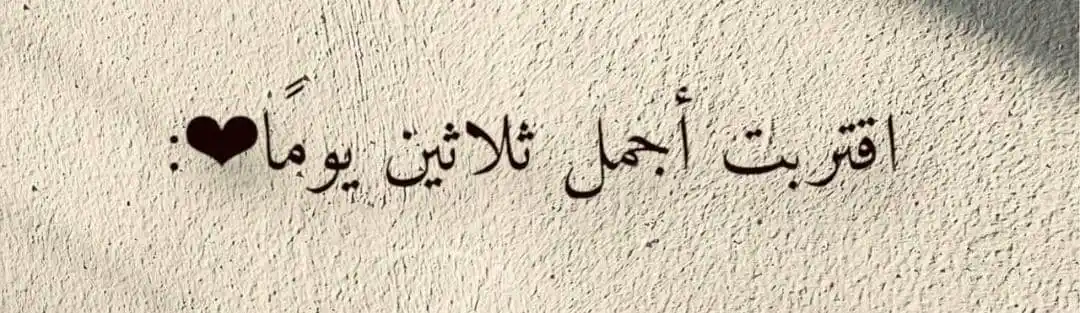 اقتربت أجمل ثلاثين يومًا❤: